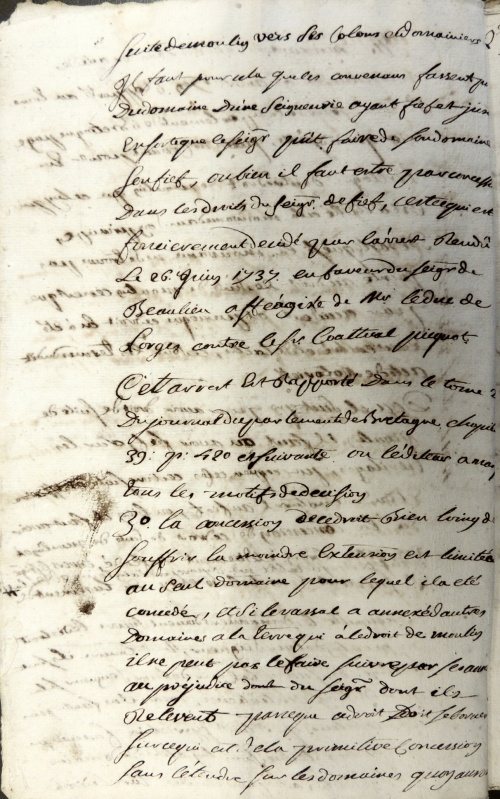 suite de moulin vers ses Colons et domainiers
il faut pour cela que les convenans fassent
Du domaine D'une Seigneurie ayant fief et
En sorte que le seigr puît faire de son domaine
son fief, ou bien il faut estre par
Dans les droits du seigr de fief, c'est ce qui est
par l'arrest Rendû
Le 26e juin 1737 en faveur du seigr de
Beaulieu afféagiste de Mr le duc de
Lorges contre le sr Coattreal picquot
Cet arrest Est Rapporté Dans le tome 2
Du journal du parlement de Bretagne chapit
39: p: 480 et suivante ou l'editeur a
tous les motifs de decision
3o. la concession de ce droit Bien loing de
souffrir la moindre Extension est limitée
au seul domaine pour lequel il a eté
concedé, et si le vassal a annexé d'autres
Domaines a la terre qui a le droit de moulin
il ne peut pas le faire suivre par
au préjudice du seigr dont ils
Relevent parceque ce droit Doit se borner
sur ce qui est de la primitive Concession
sans l'etendre sur les domaines